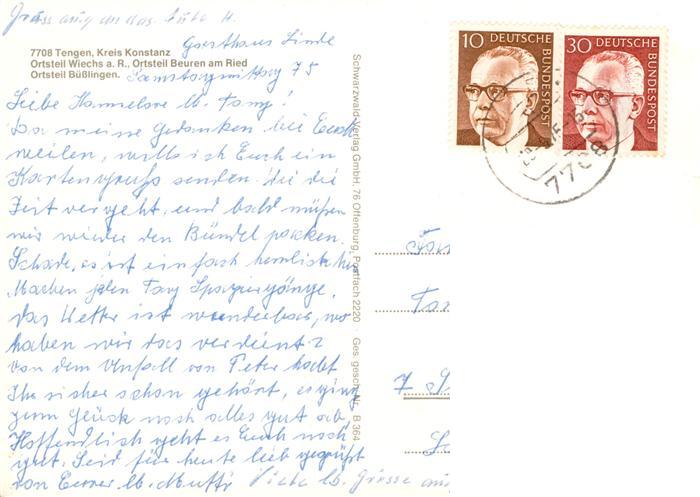 Gruss auch an das Liebe H.
7708 Tengen, Kreis Konstanz
Ortsteil Wiechs a. R., Ortsteil Beuren am Ried
Ortsteil Büßlingen.
Gasthaus Linde
Samstagmittag 75
Liebe Hannelore u.
Da meine Gedanken bei Euch
weilen, will ich Euch ein
Kartengruß senden. Ja die
Zeit vergeht, und bald müßen
wir wieder den Bündel packen.
Schade, es ist einfach herrlich hier
Machen jeden Tag Spaziergänge.
Das Wetter ist wunderbar, wo
haben wir das verdient?
von dem Unfall von Peter habt
Ihr sicher schon gehört, es ging
zum Glück noch alles gut ab.
Hoffendlich geht es Euch noch
gut. Seid für heute lieb gegrüßt
von Eurer lb. Mutti
Viele lb. Grüsse
Schwarzwald-Verlag GmbH, 76 Offenburg, Postfach 2220 Ges. gesch. Nr. B 364
10 DEUTSCHE BUNDESPOST
30 DEUTSCHE BUNDESPOST
7708
7